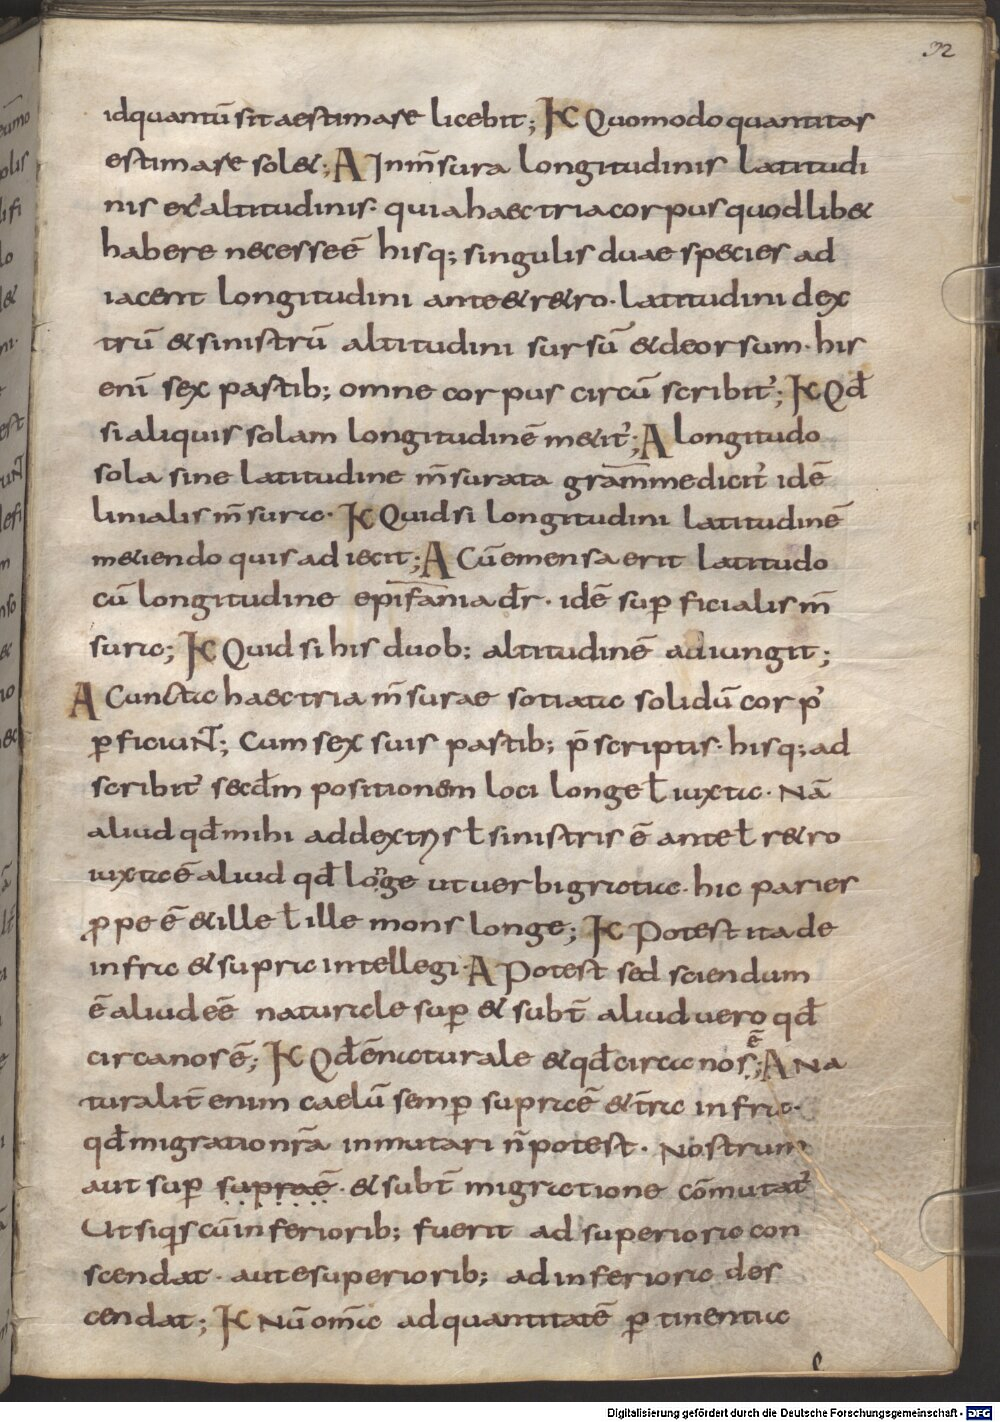 32
idquantū sit aestimare licebit; K Quomodo quantitas
estimare sol&; A In m̄sura longitudinis latitudi
nis et altitudinis· quia haec tria corpus quodlib&
habere necesse ē hisq; singulis duae species ad
iacent longitudini ante & r&ro· latitudini dex
trū & sinistrū altitudini sursū & deorsum· his
enī sex partib; omne corpus circū scribit᾿; K Qđ
si aliquis solam longitudinē m&it᾿; A longitudo
sola sine latitudine m̄surata gram̄me dicit᾿ idē
linialis m̄sura· K Quid si longitudini latitudinē
m&iendo quis adiecit; A Cū emensa erit latitudo
cū longitudine epifania dr̄· idē suꝑficialis m̄
sura; K Quid si his duob; altitudinē adiungit;
A Cuncta haec tria m̄surae sotiata solidū corp᾿
ꝑficiuNT; Cum sex suis partib; p̄scriptis· hisq; ad
scribit᾿ secđm positionem loci longe ł iuxta· Nā
aliud qđ mihi ad dextris ł sinistris ē ante ł r&ro
iuxta ē aliud qđ longe ut uerbi gratia· hic paries
ꝓpe ē & ille ł ille mons longe; K Potest ita de
infra & supra intellegi· A Potest sed sciendum
ē aliud eē naturale suꝑ & subt̄ aliud uero qđ
circa nos ē; K Qđ ē naturale & qđ circa nos ē; A Na
turalit̄ enim caelū semꝑ supra ē & t̄ra infra·
qđ migratio nr̄a inmutari n̄ potest· Nostrum
aut suꝑ suprae· & subt̄ migratione cōmutat᾿
Ut siqis cū inferiorib; fuerit ad superiora con
scendat· aut e superiorib; ad inferiora des
cendat; K Nū om̄ia ad quantitatē ꝑtinentia
Digitalisierung gefördert durch die Deutsche Forschungsgemeinschaft - DFG